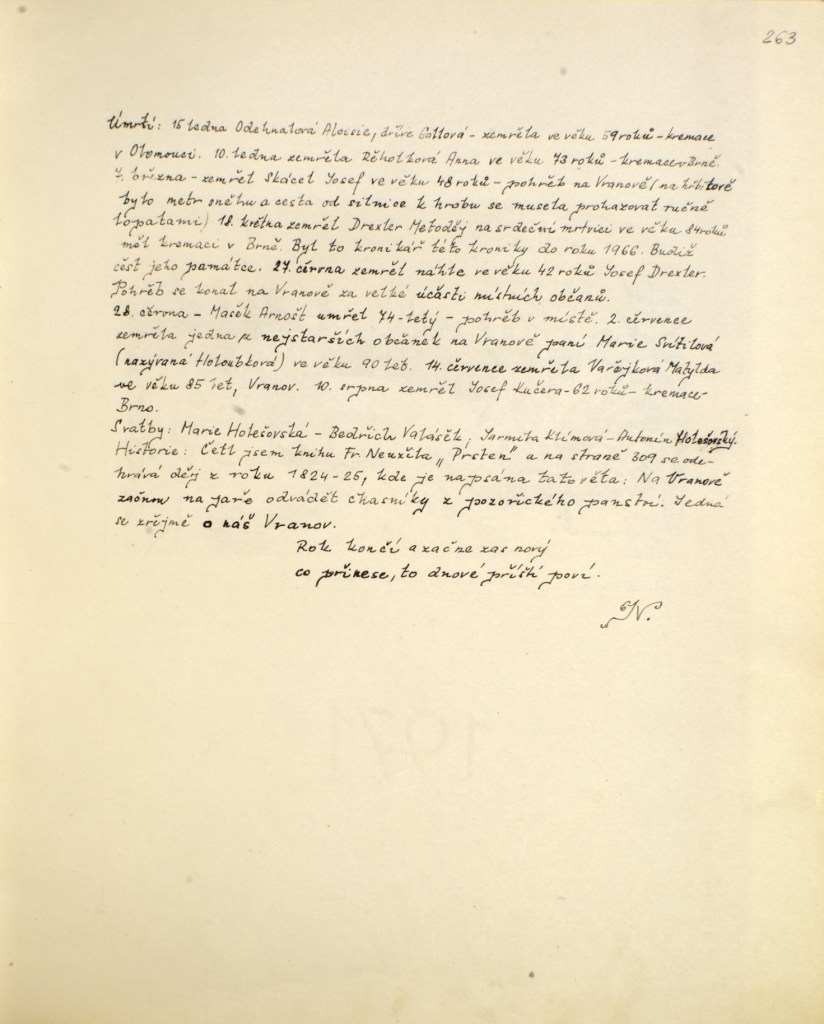 263
Úmrtí: 15 ledna Odehnalová Aloisie, dříve Gottová - zemřela ve věku 59 roků - kremace
v Olomouci. 10. ledna zemřela Řéhotková Anna ve věku 73 roků - kremace v Brně.
7. března - zemřel Skácel Josef ve věku 48 roků - pohřeb na Vranově (na hřbitově
bylo metr sněhu a cesta od silnice k hrobu se musela prohazovat ručně
lopatami) 18. května zemřel Drexler Metoděj na srdeční mrtvici ve věku 84 roků
měl kremaci v Brně. Byl to kronikář této kroniky do roku 1966. Budiž
čest jeho památce. 27. června zemřel náhle ve věku 42 roků Josef Drexler.
Pohřeb se konal na Vranově za velké účasti místních občanů.
28. června - Mašek Arnošt umřel 74-letý - pohřeb v místě. 2. července
zemřela jedna z nejstarších občanek na Vranově paní Marie Svitilová
(nazývaná Holoubková) ve věku 90 let. 14. července zemřela Vařejková Matylda
ve věku 85 let, Vranov. 10. srpna zemřel Josef Kučera - 62 roků - kremace
Brno.
Svatby: Marie Holešovská - Bedřich Valášek, Jarmila Klímová - Antonín Holešovský.
Historie: Četl jsem knihu Fr. Neužila "Prsten" a na straně 309 se ode-
hrává děj z roku 1824-25, kde je napsána tato věta: Na Vranově
začnou na jaře odvádět chasníky z pozořického panství. Jedná
se zřejmě o náš Vranov.
Rok končí a začne zas nový
co přinese, to dnové příští poví.
N.